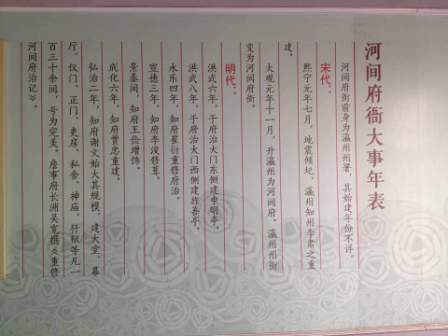 河间府衙大事年表
河间府衙前身为瀛州州署，其始建年份不详。
宋代：
熙宁元年七月，地震倾圮，瀛州知州李肃之重
建。
大观元年十一月，升瀛州为河间府，瀛州州衙
变为河间府衙。
明代：
洪武六年，于府治大门东侧建申明亭。
洪武八年，于府治大门西侧建旌善亭。
永乐四年，知府崔衍重修府治。
宣德三年，知府李瑗修葺。
景泰间，知府王俭增饰。
成化六年，知府贾忠重建。
弘治二年，知府谢文始大其规模，建大堂、幕
厅、仪门、正门、吏房、私舍、神庙、犴狱等凡一
百三十余间，号为完美。詹事府长洲吴宽撰《重修
河间府治记》。